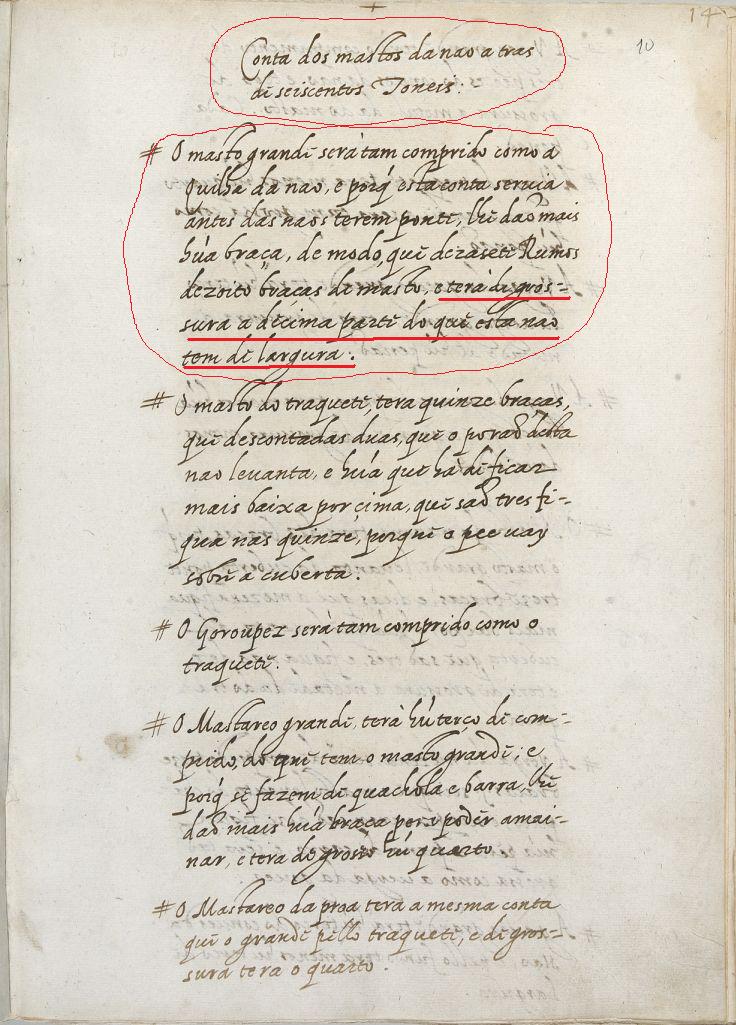 14
10
Conta dos mastos da nao a tras
de seiscentos Toneis:
# O masto grande será tam comprido como a
Quilha da nao, e porq̃ esta conta seruia
antes das naos terem ponte, lhe daõ mais
hũa braça, de modo que dezasete Rumos
dezoito braças de masto, e terà de gros=
sura a decima parte do que esta nao
tem de largura.
# O masto do traquete, tera quinze braças,
que descontadas duas, que o poraõ desta
nao leuanta, e hũa que hà de ficar
mais baixa por cima, que saõ tres fi=
qua nas quinze, porque o pee uay
sobre a cuberta.
# O Goroupez será tam comprido como o
traquete.
# O Mastareo grande, terà hũ terço de com=
prido, do que tem o masto grande; e
porq̃ se fazem de quachola e barra, lhe
daõ mais hũa braça pera poder amai=
nar, e tera de grosso hũ quarto.
# O Mastareo da proa terà a mesma conta
que o grande pello traquete, e de gros=
sura tera o quarto.